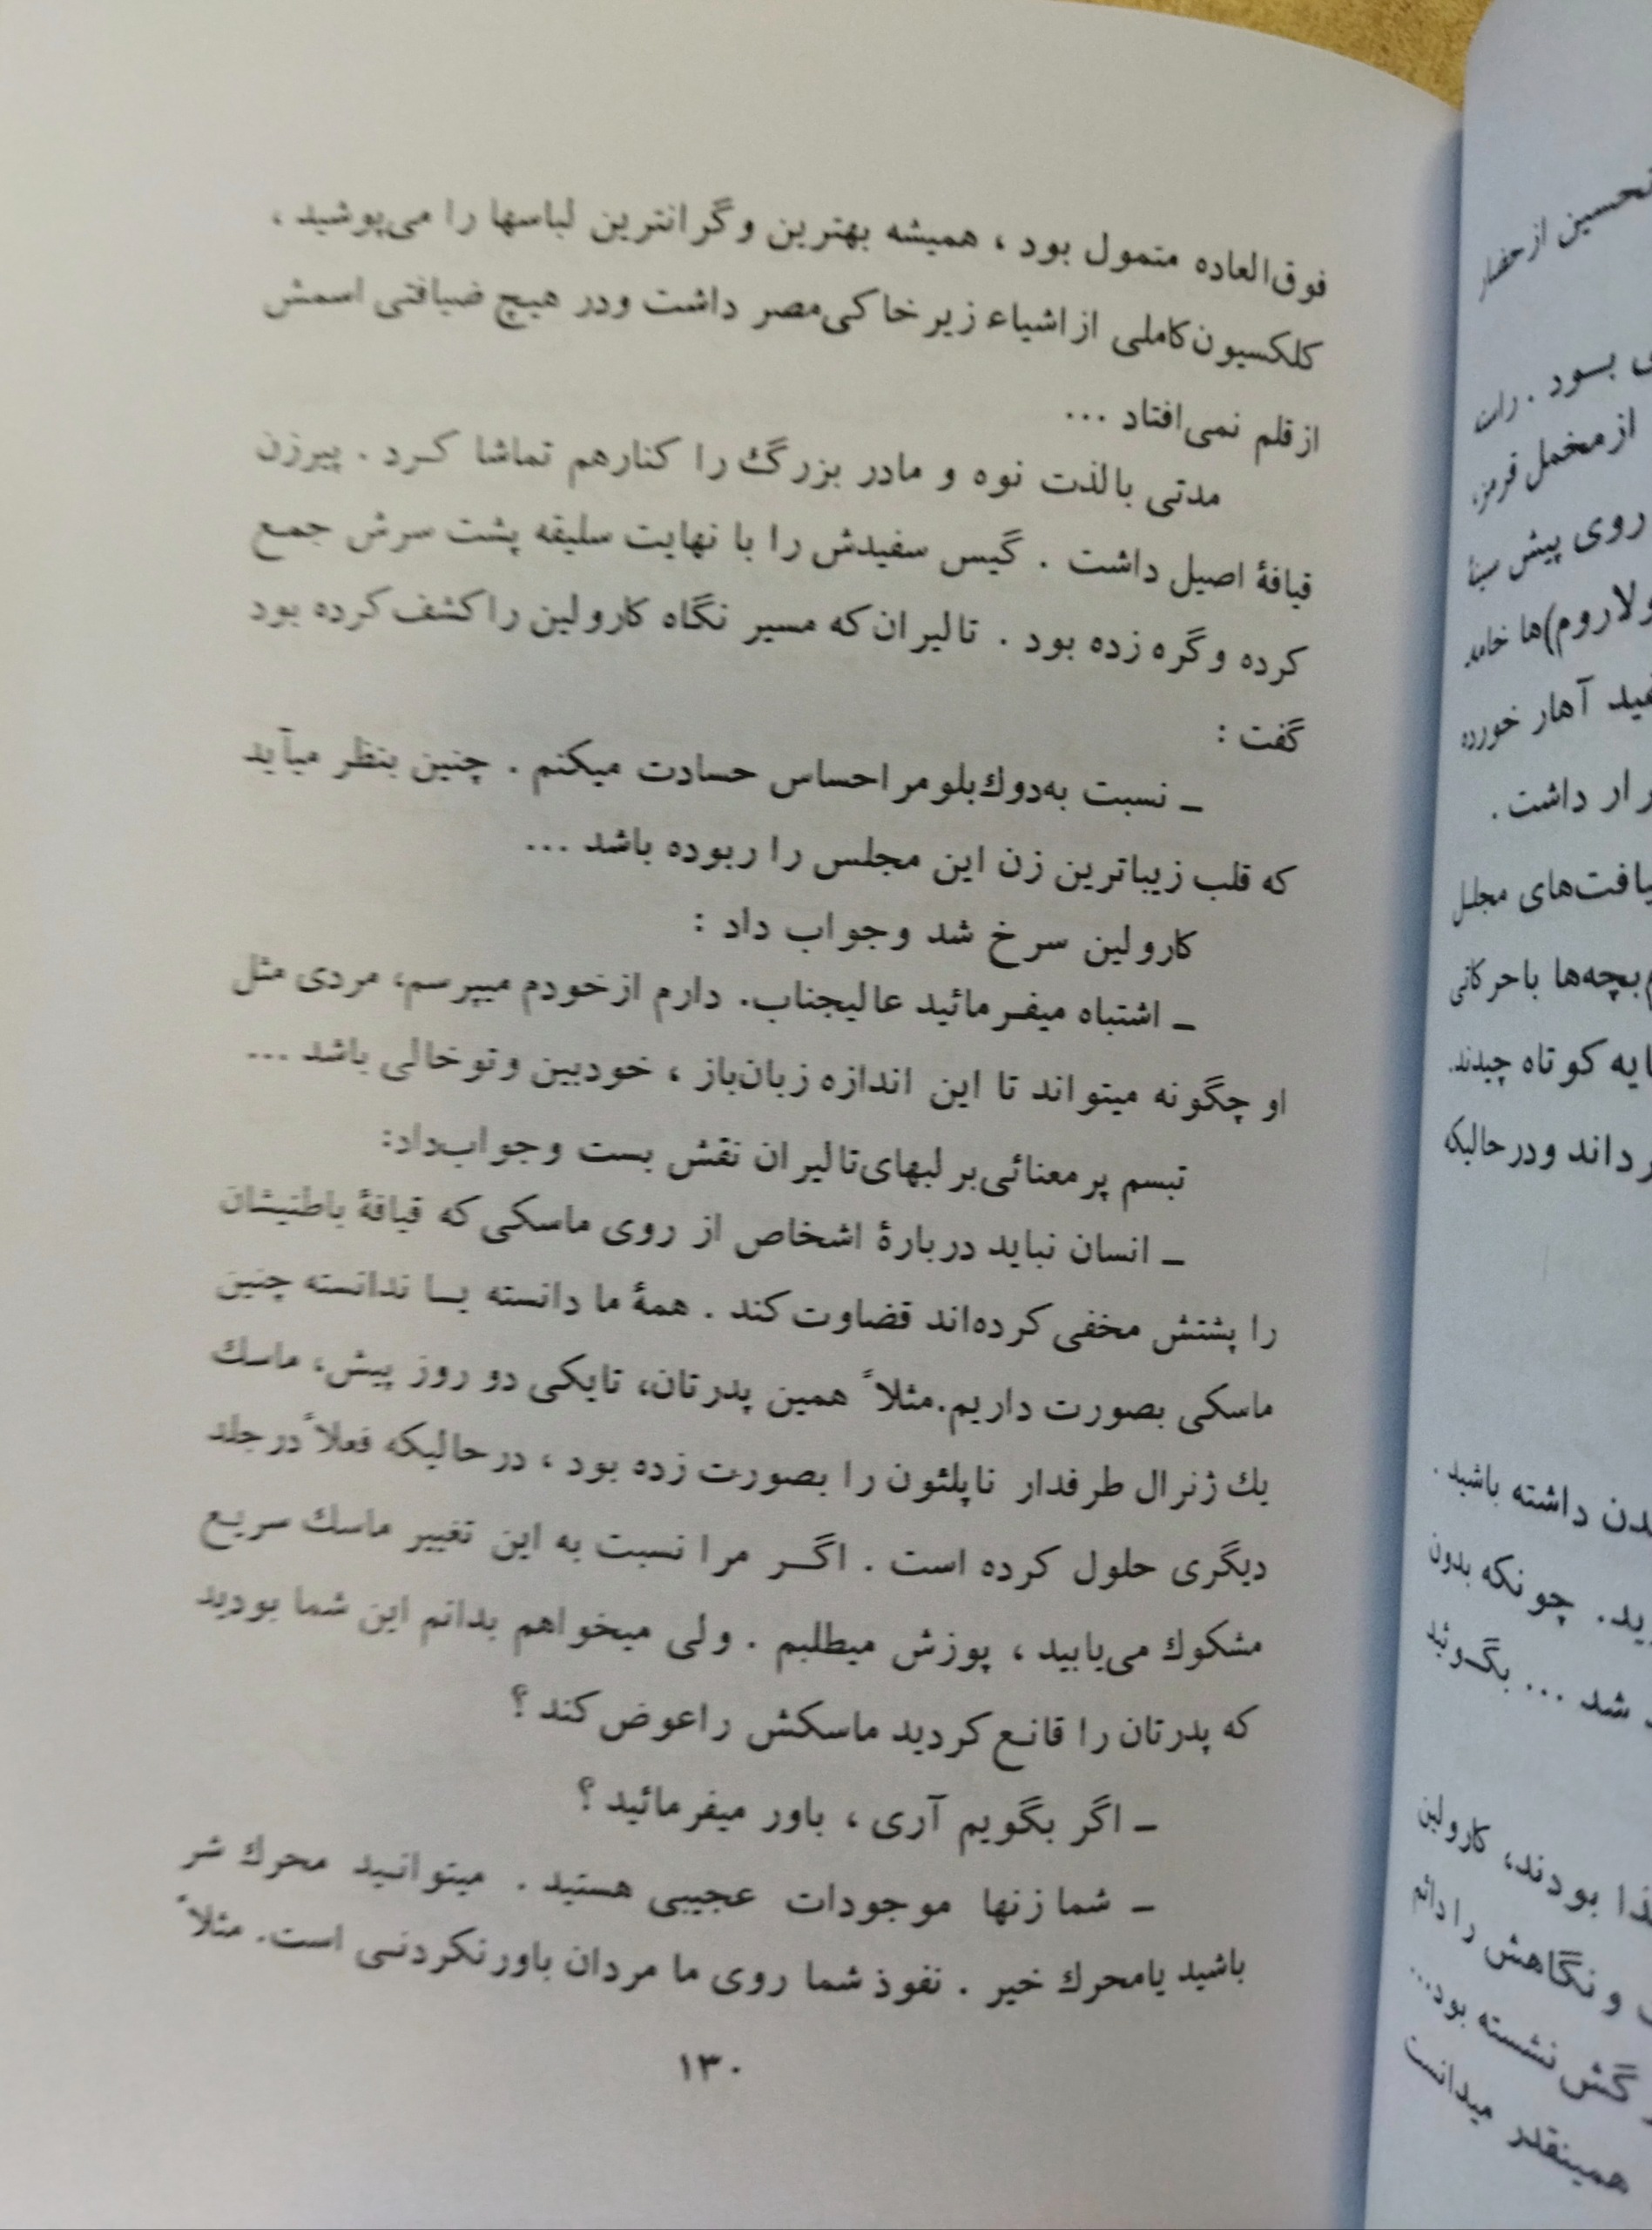 فوق‌العاده متمول بود ، همیشه بهترین وگرانترین لباسها را می‌پوشید ،
کلکسیون‌کاملی ازاشیاء زیرخاکی‌مصر داشت ودر هیچ ضیافتی اسمش
ازقلم نمی‌افتاد ...
مدتی بالذت نوه و مادر بزرگ را کنارهم تماشا کرد . پیرزن
قیافهٔ اصیل داشت . گیس سفیدش را با نهایت سلیقه پشت سرش جمع
کرده وگره زده بود . تالیران‌که مسیر نگاه کارولین راکشف‌کرده بود
گفت :
ـ نسبت به‌دوك‌بلومر احساس حسادت میکنم . چنین بنظر میآید
که قلب زیباترین زن این مجلس را ربوده باشد ...
کارولین سرخ شد وجواب داد :
ـ اشتباه میفرمائید عالیجناب. دارم ازخودم میپرسم، مردی مثل
او چگونه میتواند تا این اندازه زبان‌باز ، خودبین وتوخالی باشد ...
تبسم پرمعنائی‌برلبهای‌تالیران نقش بست وجواب‌داد:
ـ انسان نباید دربارهٔ اشخاص از روی ماسکی‌که قیافهٔ باطنیشان
را پشتش مخفی‌کرده‌اند قضاوت‌کند . همهٔ‌ما دانسته یا ندانسته چنین
ماسکی بصورت داریم.مثلاً همین پدرتان، تایکی دو روز پیش، ماسك
یك ژنرال طرفدار ناپلئون را بصورت زده بود ، درحالیکه فعلاً درجلد
دیگری حلول کرده است . اگر مرا نسبت به این تغییر ماسك سریع
مشکوك می‌یابید ، پوزش میطلبم . ولی میخواهم بدانم این شما بودید
که پدرتان را قانع‌کردید ماسکش راعوض‌کند ؟
ـ اگر بگویم آری ، باور میفرمائید ؟
ـ شمازنها موجودات عجیبی هستید . میتوانید محرك شر
باشید یامحرك خیر . نفوذ شما روی ما مردان باورنکردنی است. مثلاً
۱۳۰
تحسین ازحضار
بود . رات
ازمخمل قرمز،
روی پیش سینهٔ
ها خامه
آهار خورده
داشت .
مجلل
بچه‌ها باحرکاتی
کوتاه چیدند.
ودرحالیکه
داشته باشید .
چونکه بدون
شد ... بگوئید
بودند، کارولین
و نگاهش رادائم
نشسته بود...
همینقدر میدانست